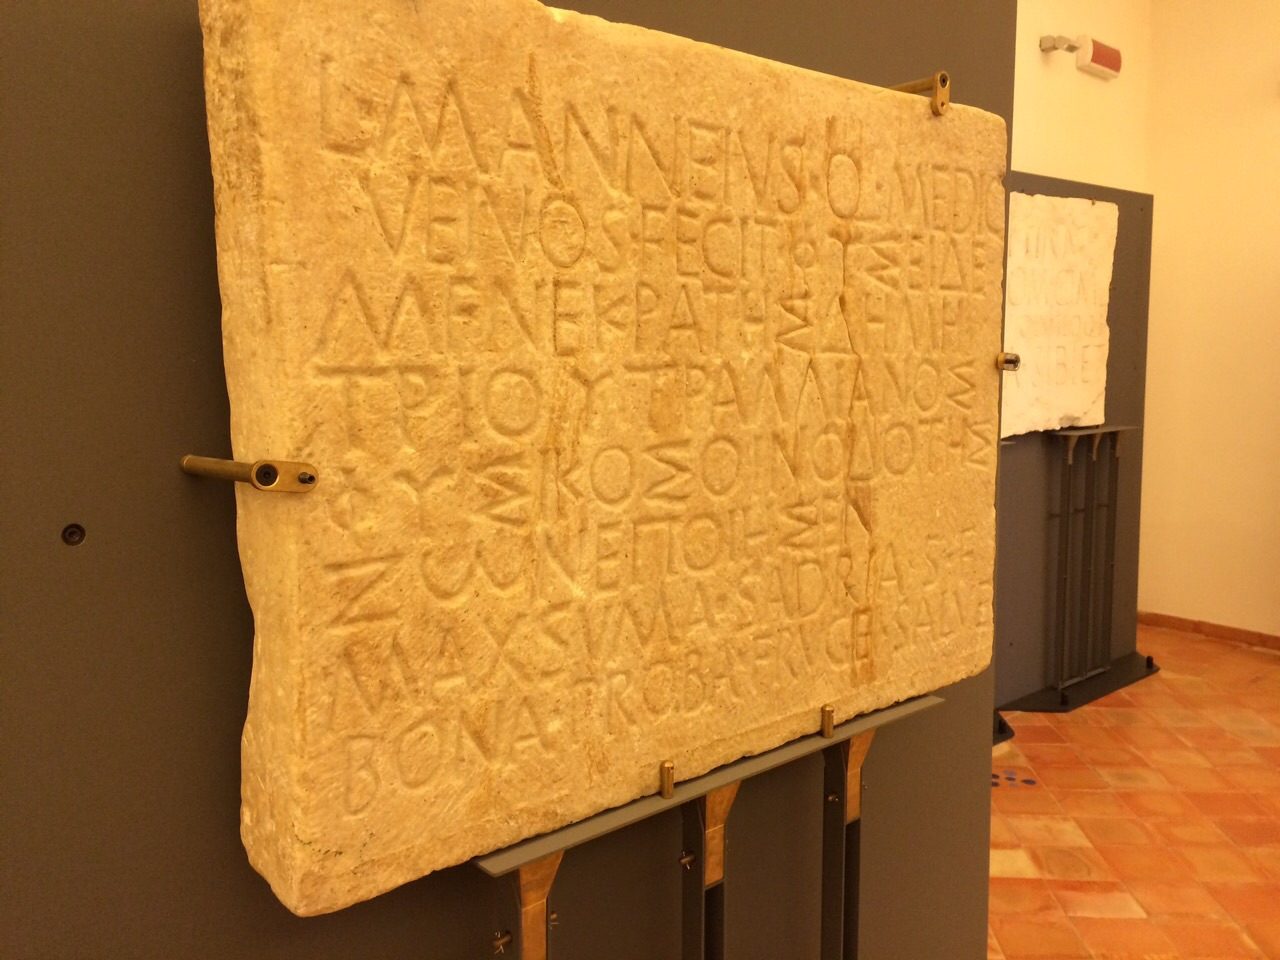 L·MANNEIVS·Q·MEDIC
VEIVOS·FECIT·ΦΥΣΕΙΔΕ
ΜΕΝΕΚΡΑΤΗΣΔΗΜΗ
ΤΡΙΟΥΤΡΑΛΛΙΑΝΟΣ
ΦΥΣΙΚΟΣΟΙΝΟΔΟΤΗΣ
ΖΩΝΕΠΟΙΗΣΕΝ
MAXSVMA·SADRIA·S·F
BONA·PROBA·FRVGEI·SALVE
SIBI ET